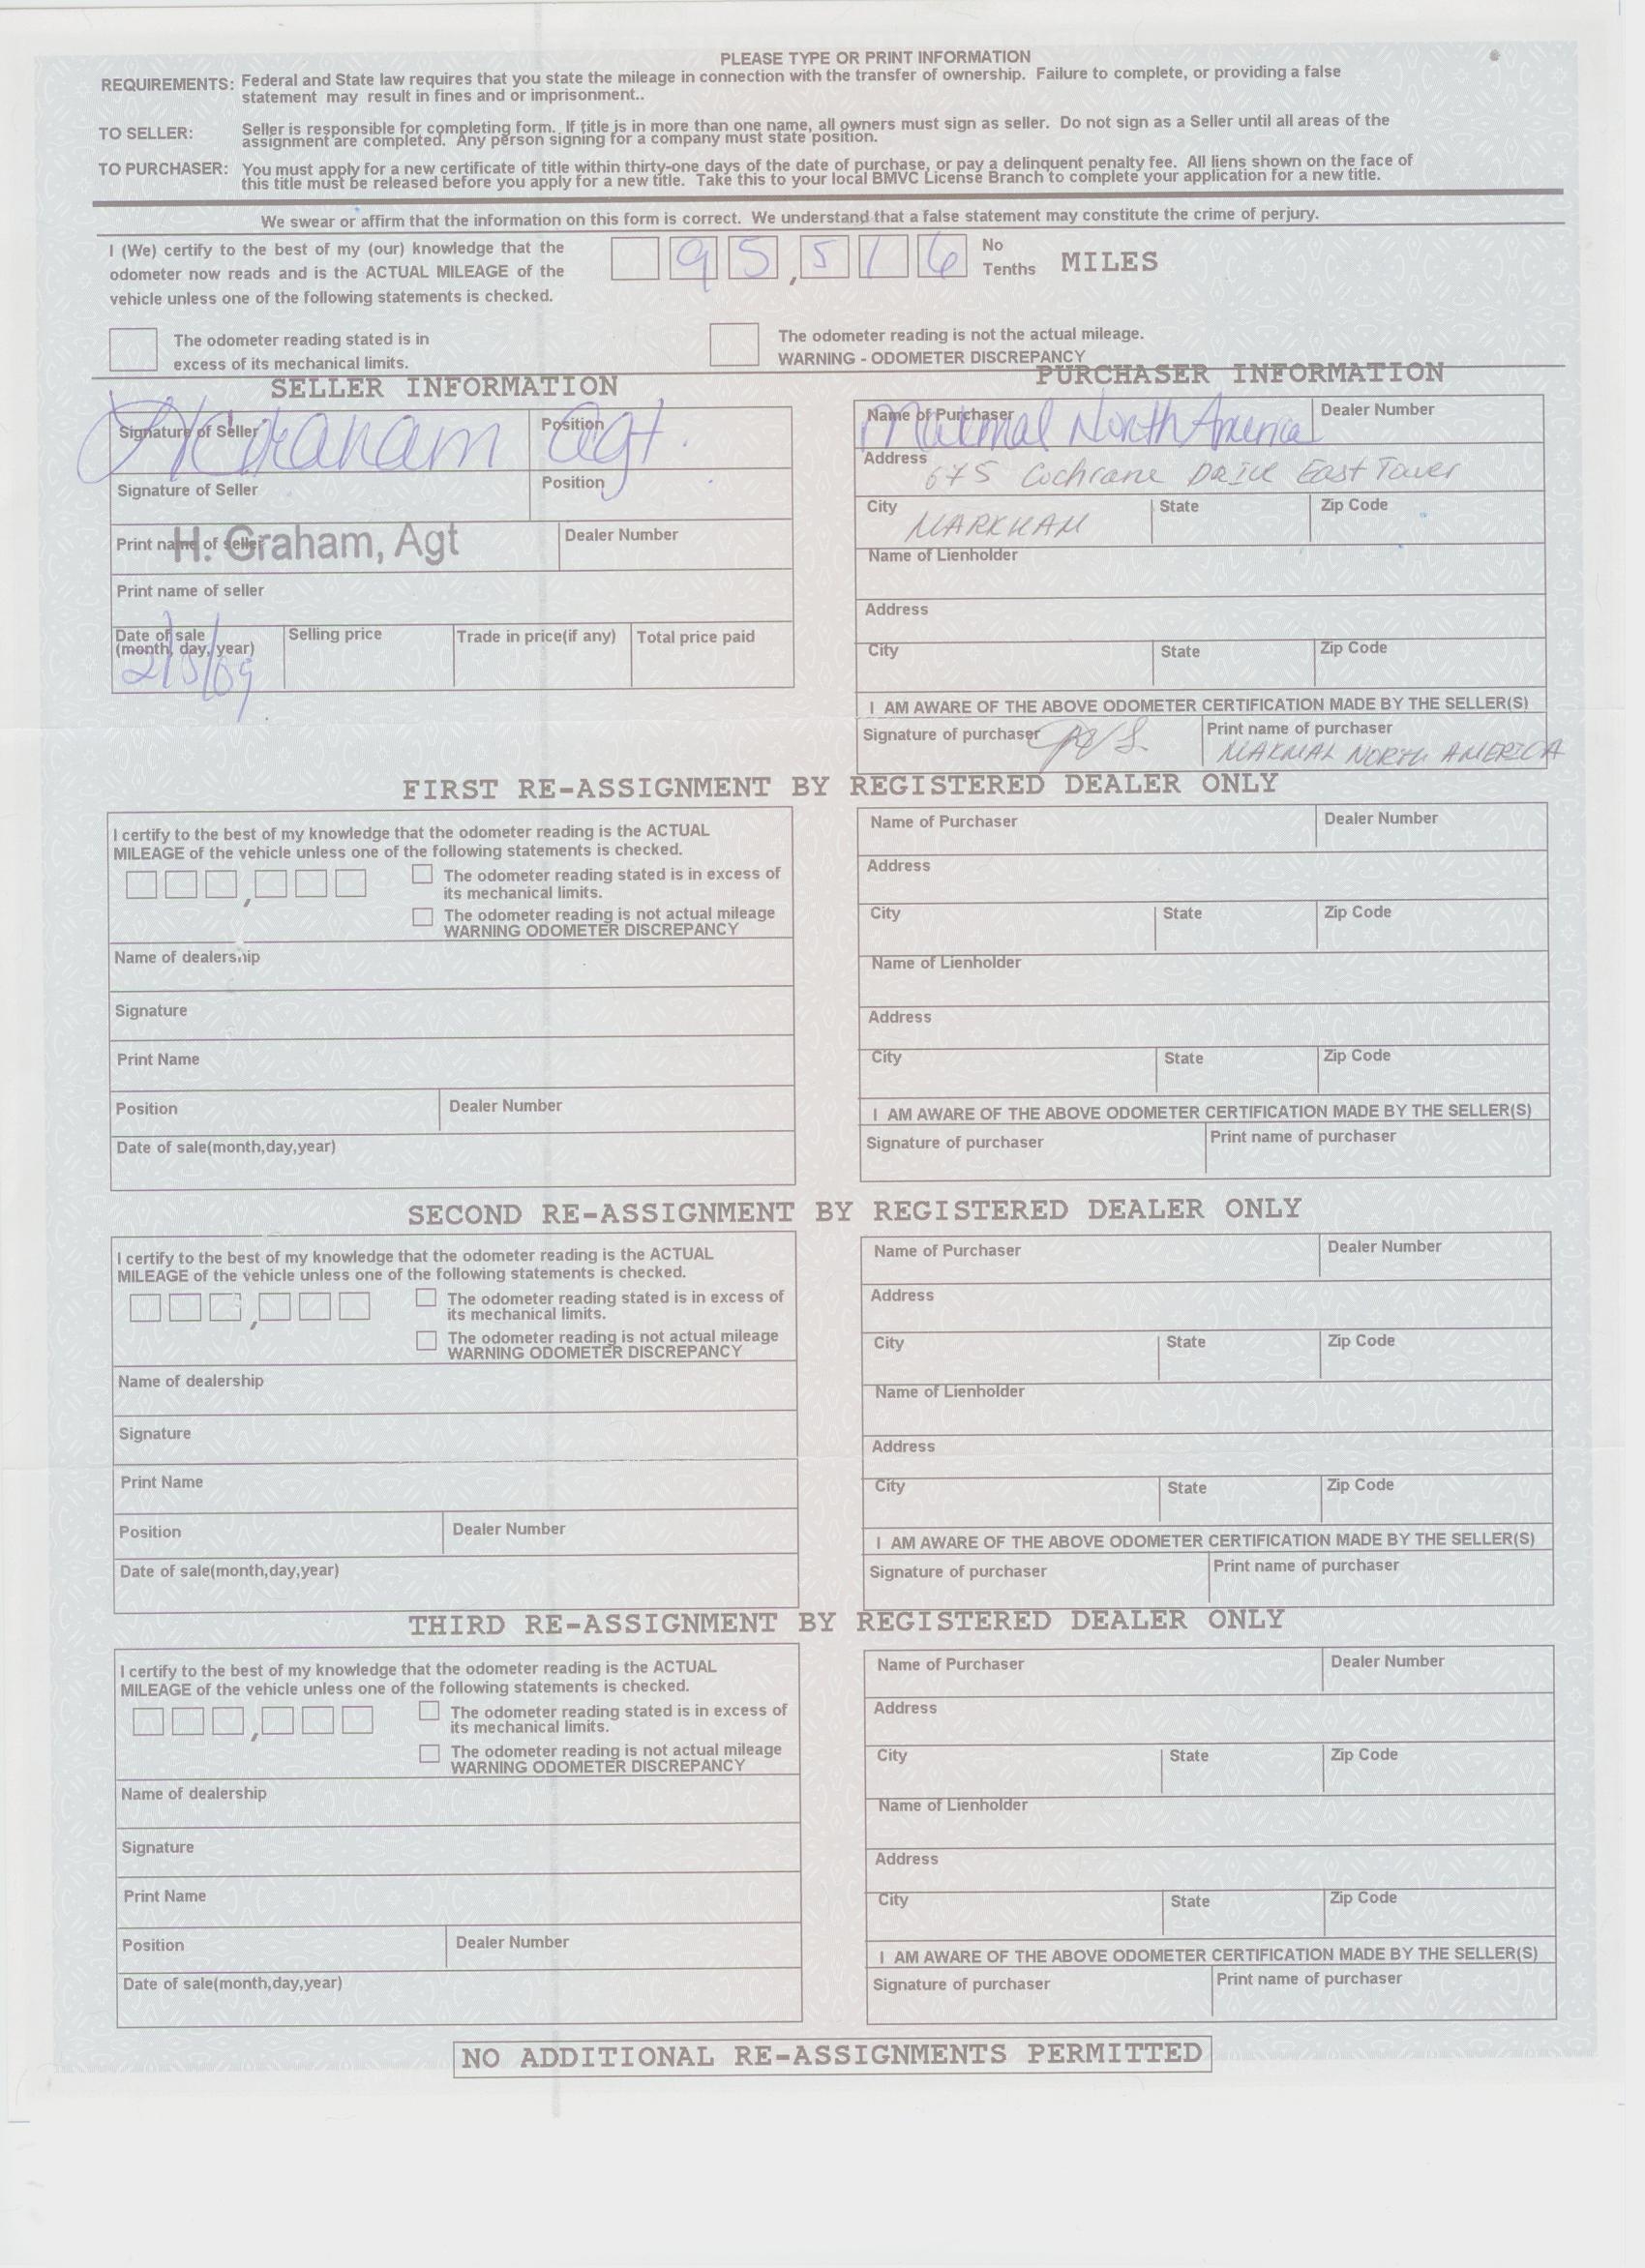 PLEASE TYPE OR PRINT INFORMATION
REQUIREMENTS: Federal and State law requires that you state the mileage in connection with the transfer of ownership. Failure to complete, or providing a false
statement may result in fines and or imprisonment..
TO SELLER: Seller is responsible for completing form. If title is in more than one name, all owners must sign as seller. Do not sign as a Seller until all areas of the
assignment are completed. Any person signing for a company must state position.
TO PURCHASER: You must apply for a new certificate of title within thirty-one days of the date of purchase, or pay a delinquent penalty fee. All liens shown on the face of
this title must be released before you apply for a new title. Take this to your local BMVC License Branch to complete your application for a new title.
We swear or affirm that the information on this form is correct. We understand that a false statement may constitute the crime of perjury.
I (We) certify to the best of my (our) knowledge that the
odometer now reads and is the ACTUAL MILEAGE of the
vehicle unless one of the following statements is checked.
95,516 No Tenths MILES
The odometer reading stated is in
excess of its mechanical limits.
The odometer reading is not the actual mileage.
WARNING - ODOMETER DISCREPANCY
SELLER INFORMATION
Signature of Seller HGraham Position Agt.
Signature of Seller Position
Print name of seller H. Graham, Agt Dealer Number
Print name of seller
Date of sale Selling price Trade in price(if any) Total price paid
(month, day, year)
2/5/09
PURCHASER INFORMATION
Name of Purchaser Makmal North America Dealer Number
Address 675 Cochrane DRIVE East Tower
City MARKHAM State Zip Code
Name of Lienholder
Address
City State Zip Code
I AM AWARE OF THE ABOVE ODOMETER CERTIFICATION MADE BY THE SELLER(S)
Signature of purchaser Print name of purchaser
MAKMAL NORTH AMERICA
FIRST RE-ASSIGNMENT BY REGISTERED DEALER ONLY
I certify to the best of my knowledge that the odometer reading is the ACTUAL
MILEAGE of the vehicle unless one of the following statements is checked.
,
The odometer reading stated is in excess of
its mechanical limits.
The odometer reading is not actual mileage
WARNING ODOMETER DISCREPANCY
Name of dealership
Signature
Print Name
Position Dealer Number
Date of sale(month,day,year)
Name of Purchaser Dealer Number
Address
City State Zip Code
Name of Lienholder
Address
City State Zip Code
I AM AWARE OF THE ABOVE ODOMETER CERTIFICATION MADE BY THE SELLER(S)
Signature of purchaser Print name of purchaser
SECOND RE-ASSIGNMENT BY REGISTERED DEALER ONLY
I certify to the best of my knowledge that the odometer reading is the ACTUAL
MILEAGE of the vehicle unless one of the following statements is checked.
,
The odometer reading stated is in excess of
its mechanical limits.
The odometer reading is not actual mileage
WARNING ODOMETER DISCREPANCY
Name of dealership
Signature
Print Name
Position Dealer Number
Date of sale(month,day,year)
Name of Purchaser Dealer Number
Address
City State Zip Code
Name of Lienholder
Address
City State Zip Code
I AM AWARE OF THE ABOVE ODOMETER CERTIFICATION MADE BY THE SELLER(S)
Signature of purchaser Print name of purchaser
THIRD RE-ASSIGNMENT BY REGISTERED DEALER ONLY
I certify to the best of my knowledge that the odometer reading is the ACTUAL
MILEAGE of the vehicle unless one of the following statements is checked.
,
The odometer reading stated is in excess of
its mechanical limits.
The odometer reading is not actual mileage
WARNING ODOMETER DISCREPANCY
Name of dealership
Signature
Print Name
Position Dealer Number
Date of sale(month,day,year)
Name of Purchaser Dealer Number
Address
City State Zip Code
Name of Lienholder
Address
City State Zip Code
I AM AWARE OF THE ABOVE ODOMETER CERTIFICATION MADE BY THE SELLER(S)
Signature of purchaser Print name of purchaser
NO ADDITIONAL RE-ASSIGNMENTS PERMITTED